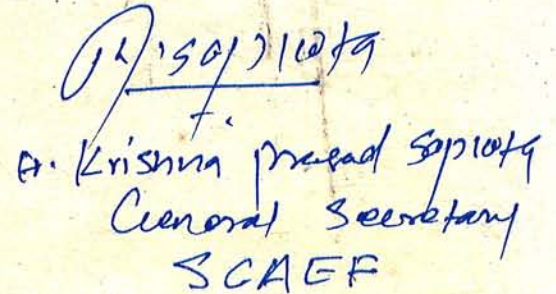 Er. Krishna Prasad Sapkota
General Secretary
SCAEF